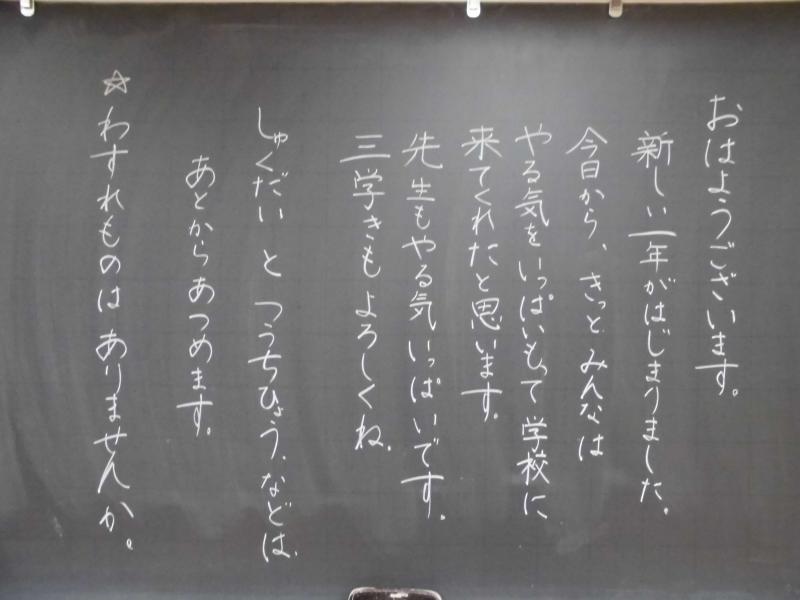 おはようございます。
新しい一年がはじまりました。
今日から、きっとみんなは
やる気をいっぱいもって学校に
来てくれたと思います。
先生もやる気いっぱいです。
三学きもよろしくね。
しゅくだいと つうちひょう、などは、
あとからあつめます。
☆わすれものは ありませんか。